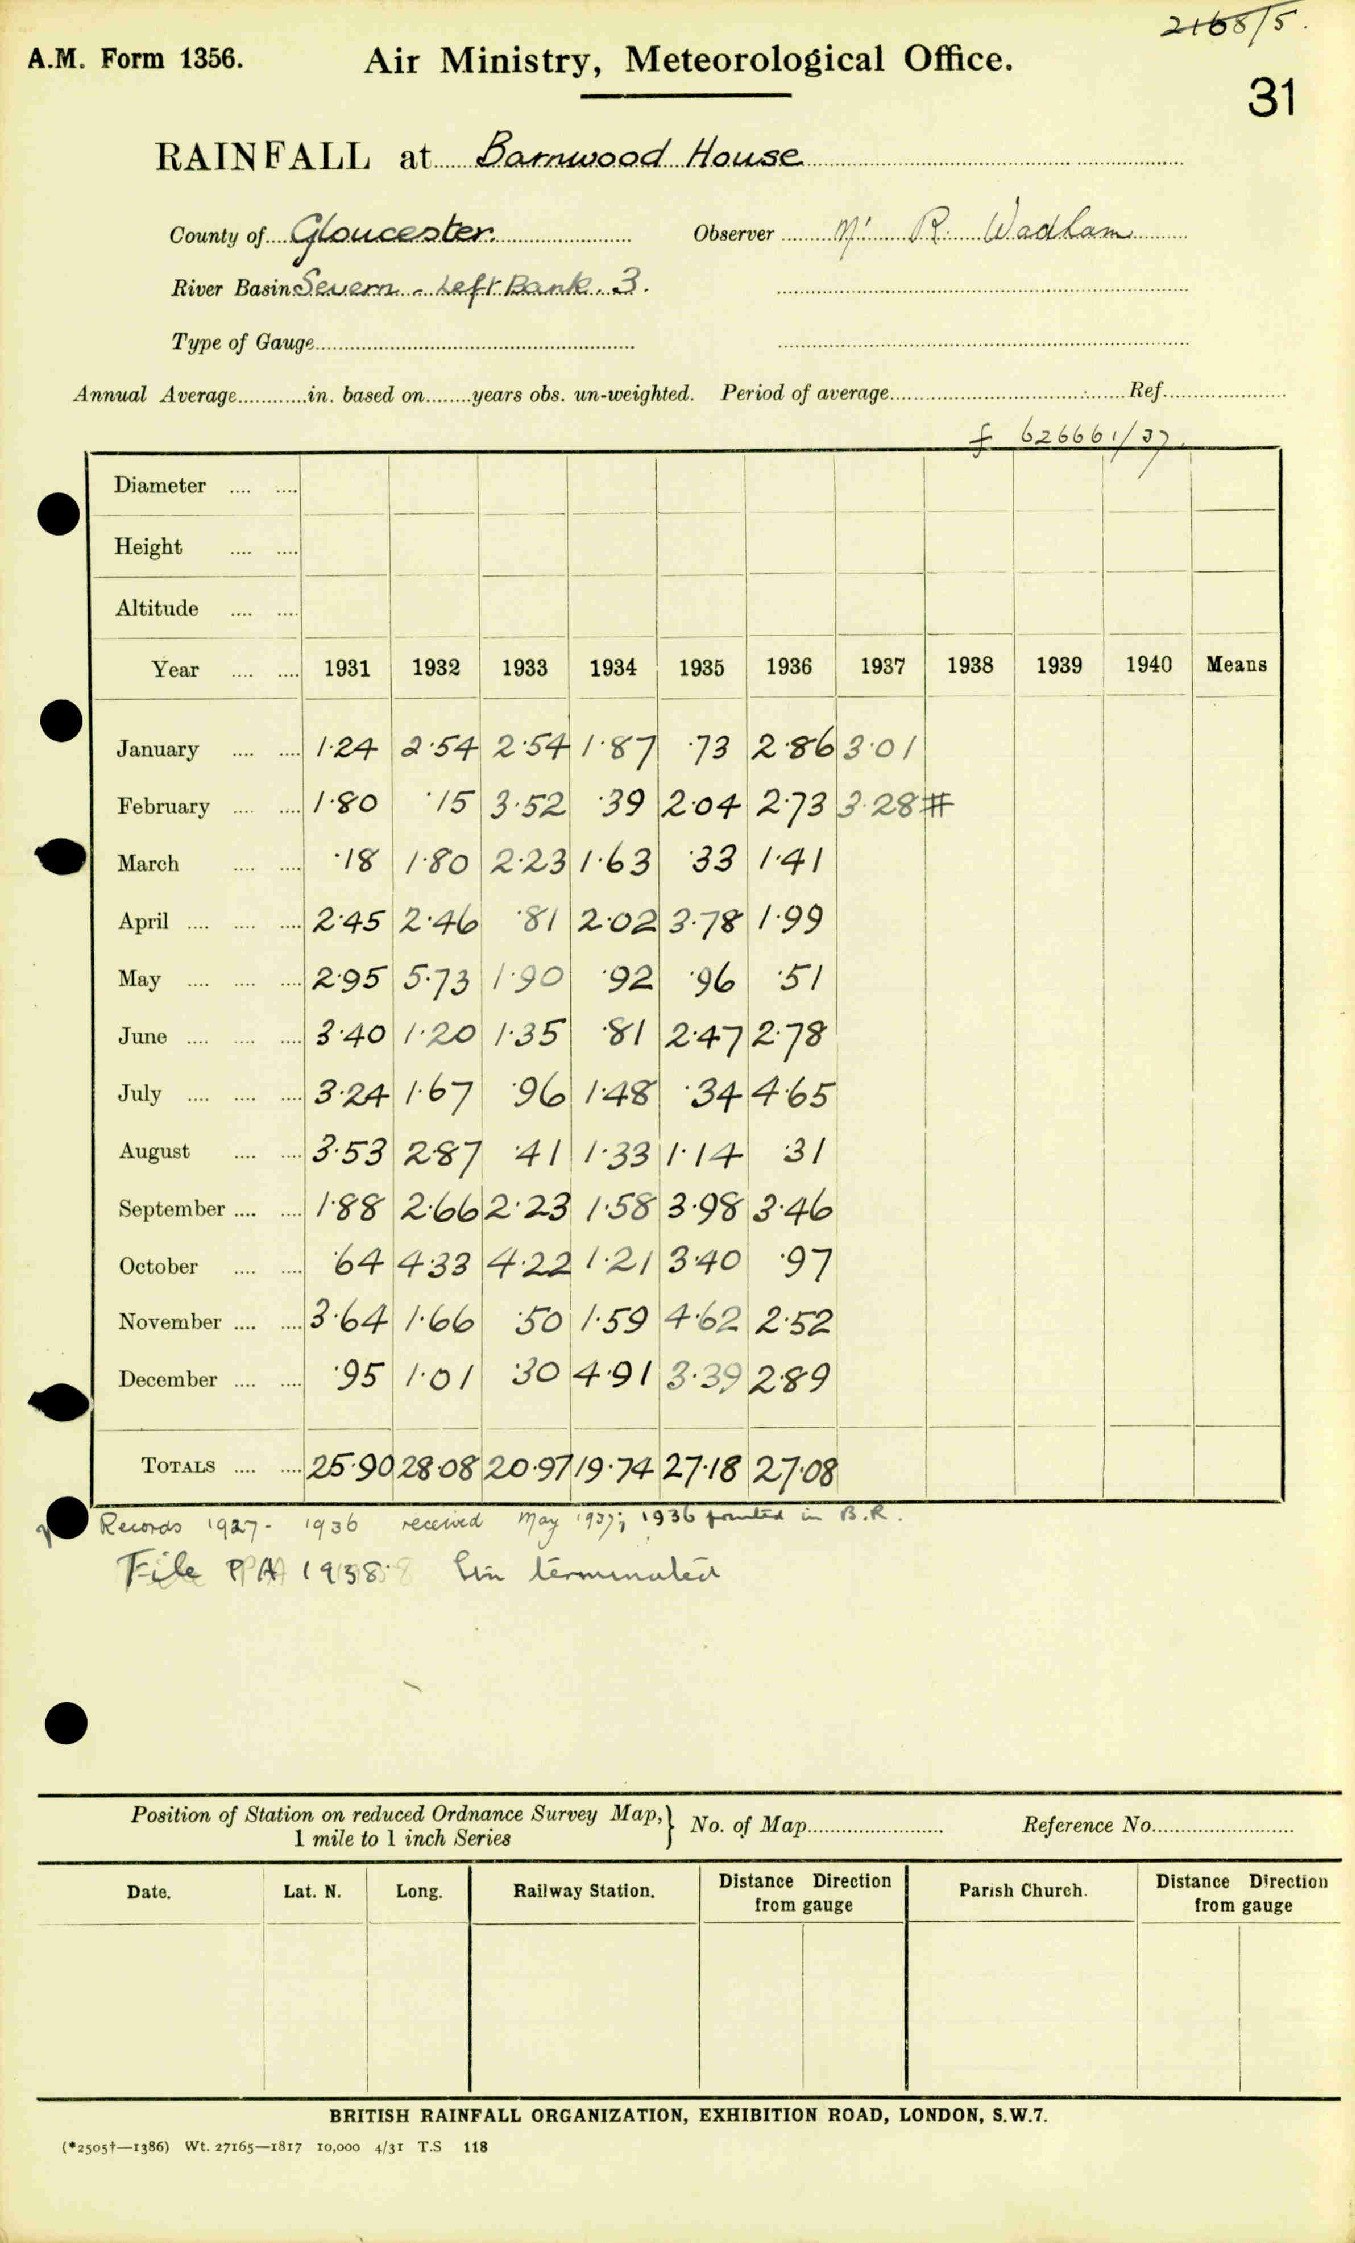 2168/5.
A.M. Form 1356. Air Ministry, Meteorological Office.
31
RAINFALL at Barnwood House
County of Gloucester. Observer Mr R. Wadham
River Basin Severn - Left Bank. 3.
Type of Gauge
Annual Average in. based on years obs. un-weighted. Period of average Ref.
f 626661/37.
Diameter
Height
Altitude
Year 1931 1932 1933 1934 1935 1936 1937 1938 1939 1940 Means
January 1.24 2.54 2.54 1.87 .73 2.86 3.01
February 1.80 .15 3.52 .39 2.04 2.73 3.28 #
March .18 1.80 2.23 1.63 .33 1.41
April 2.45 2.46 .81 2.02 3.78 1.99
May 2.95 5.73 1.90 .92 .96 .51
June 3.40 1.20 1.35 .81 2.47 2.78
July 3.24 1.67 .96 1.48 .34 4.65
August 3.53 2.87 .41 1.33 1.14 .31
September 1.88 2.66 2.23 1.58 3.98 3.46
October .64 4.33 4.22 1.21 3.40 .97
November 3.64 1.66 .50 1.59 4.62 2.52
December .95 1.01 .30 4.91 3.39 2.89
TOTALS 25.90 28.08 20.97 19.74 27.18 27.08
Records 1927- 1936 received May 1937; 1936 printed in B.R.
File PA 1938 terminated
Position of Station on reduced Ordnance Survey Map, } No. of Map Reference No.
1 mile to 1 inch Series
Date. Lat. N. Long. Railway Station. Distance Direction from gauge Parish Church. Distance Direction from gauge
BRITISH RAINFALL ORGANIZATION, EXHIBITION ROAD, LONDON, S.W.7.
(*2505†—1386) Wt. 27165—1817 10,000 4/31 T.S 118